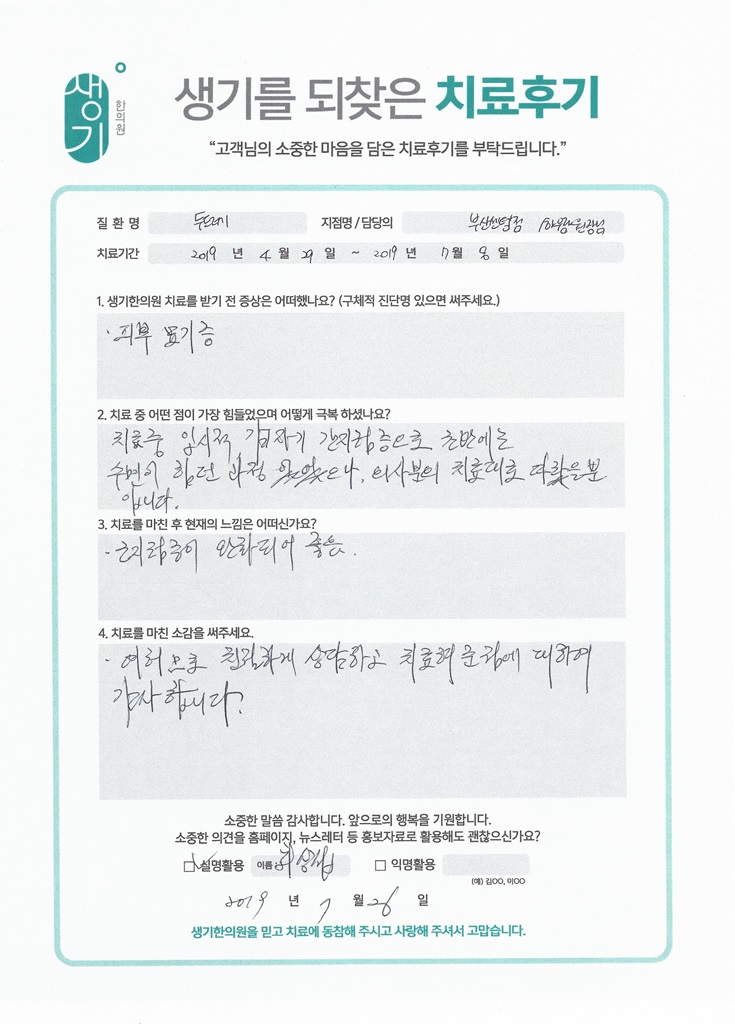 생기
한의원
생기를 되찾은 치료후기
“고객님의 소중한 마음을 담은 치료후기를 부탁드립니다.”
질 환 명 두드러기 지점명 / 담당의 부산센텀점 원장님
치료기간 2019 년 4 월 29 일 ~ 2019 년 7 월 8 일
1. 생기한의원 치료를 받기 전 증상은 어떠했나요? (구체적 진단명 있으면 써주세요.)
· 피부 묘기증
2. 치료 중 어떤 점이 가장 힘들었으며 어떻게 극복 하셨나요?
치료중 일시적 갑자기 간지럼증으로 초반에는
수면이 힘던 과정 있었으나, 의사분의 치료대로 따랐을분
입니다.
3. 치료를 마친 후 현재의 느낌은 어떠신가요?
· 근지럼증이 완화되어 좋음.
4. 치료를 마친 소감을 써주세요.
· 여러므로 친절하게 상담하고 치료해 준점에 대하여
감사합니다.
소중한 말씀 감사합니다. 앞으로의 행복을 기원합니다.
소중한 의견을 홈페이지, 뉴스레터 등 홍보자료로 활용해도 괜찮으신가요?
실명활용 이름 익명활용
(예) 김OO, 이OO
2019 년 7 월 26 일
생기한의원을 믿고 치료에 동참해 주시고 사랑해 주셔서 고맙습니다.